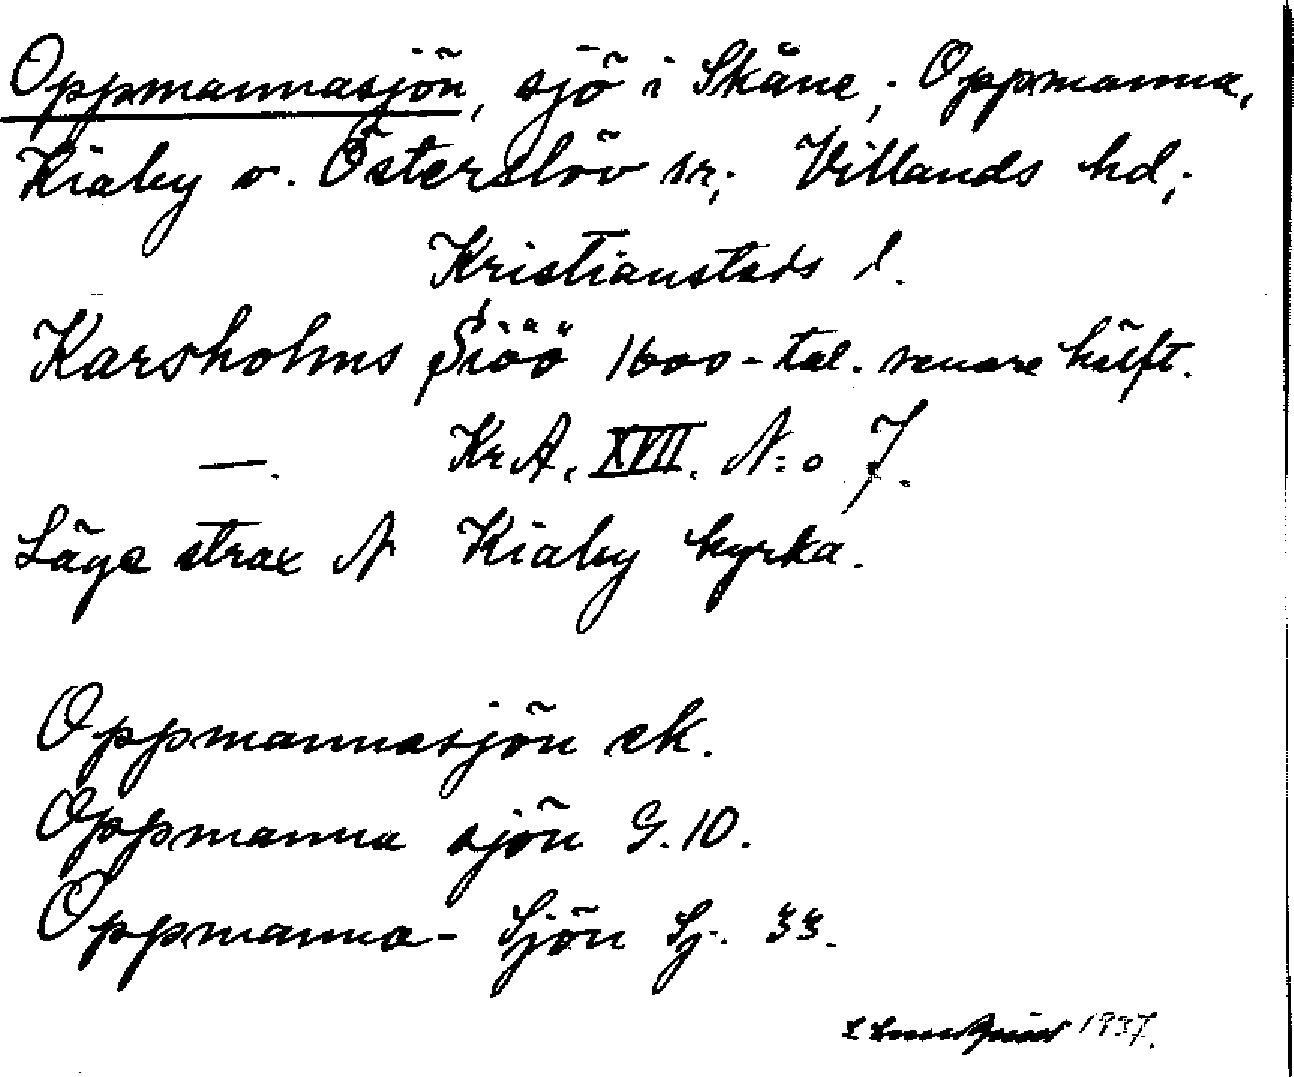 Oppmannasjön, sjö i Skåne; Oppmanna,
Kiaby o. Österslöv sr; Villands hd;
Kristianstads l.
Karsholms Siöö 1600-tal. senare hälft.
—. Kr.A. XVII. N:o 7.
Läge strax N Kiaby kyrka.
Oppmannasjön ek.
Oppmanna sjön G. 10.
Oppmanna- Sjön Sj. 33.
1937.